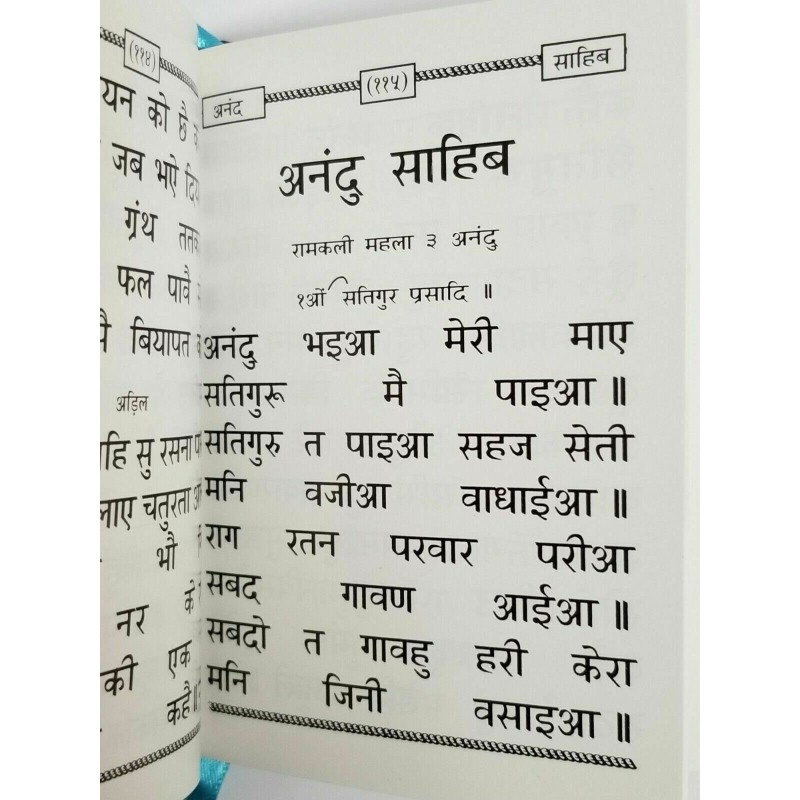 (११४)
यन को छै
जब भऐ
ग्रंथ
फल पावै
बियापत
अड़िल
हि सु रसना
लाए चतुरता
भौ
नर के
की एक
कहै॥
अनंद (११५) साहिब
अनंदु साहिब
रामकली महला ३ अनंदु
१ओं सतिगुर प्रसादि ॥
अनंदु भइआ मेरी माए
सतिगुरू मै पाइआ ॥
सतिगुरु त पाइआ सहज सेती
मनि वजीआ वाधाईआ ॥
राग रतन परवार परीआ
सबद गावण आईआ ॥
सबदो त गावहु हरी केरा
मनि जिनी वसाइआ ॥